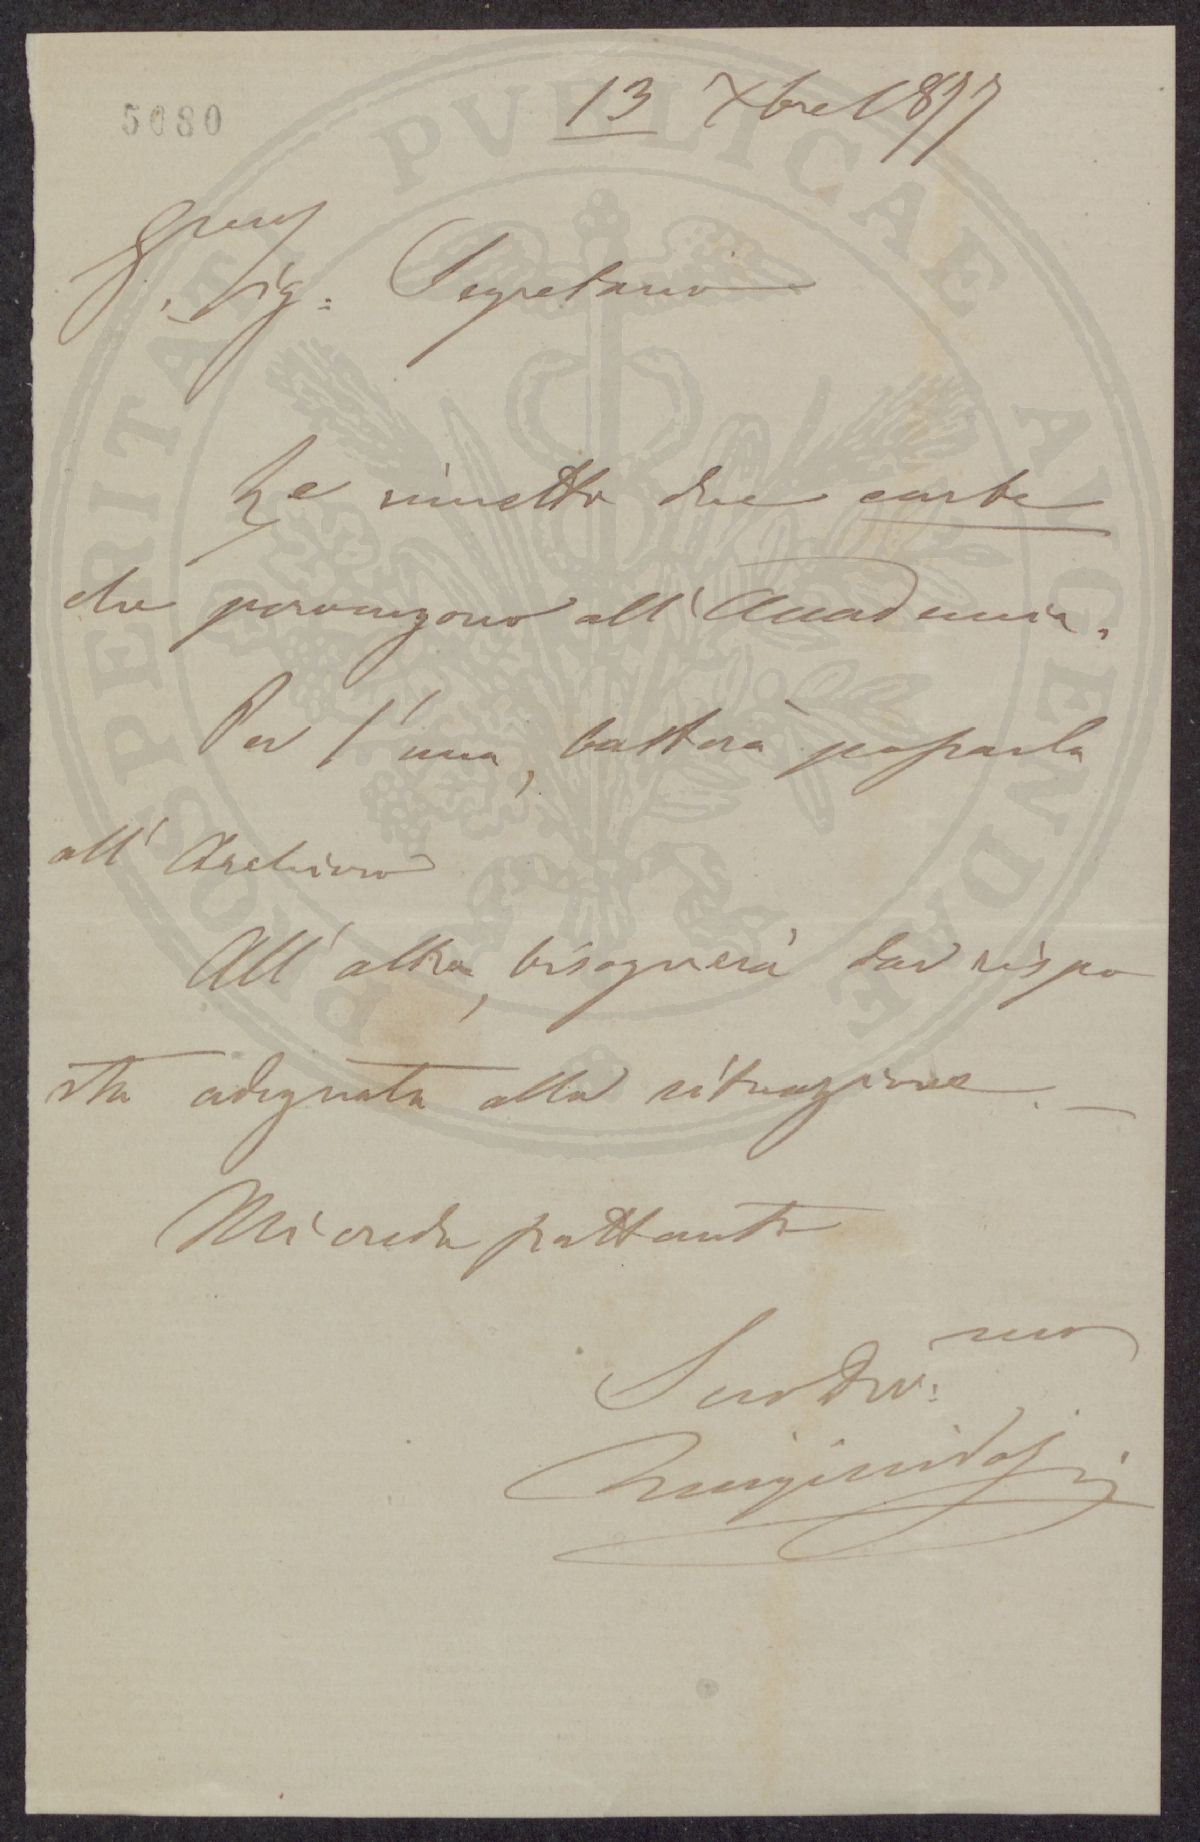 5080
13 Xbre 1877
Sig. Segretario
Le rimetto due carte
che pervengono all'Accademia.
Per l'una, basterà passarla
all'Archivio
All'altra, bisognerà dar rispo
sta adeguata alla situazione. —
Mi creda frattanto
Suo Dev.mo
PROSPERITATI PVBLICAE AVGENDAE